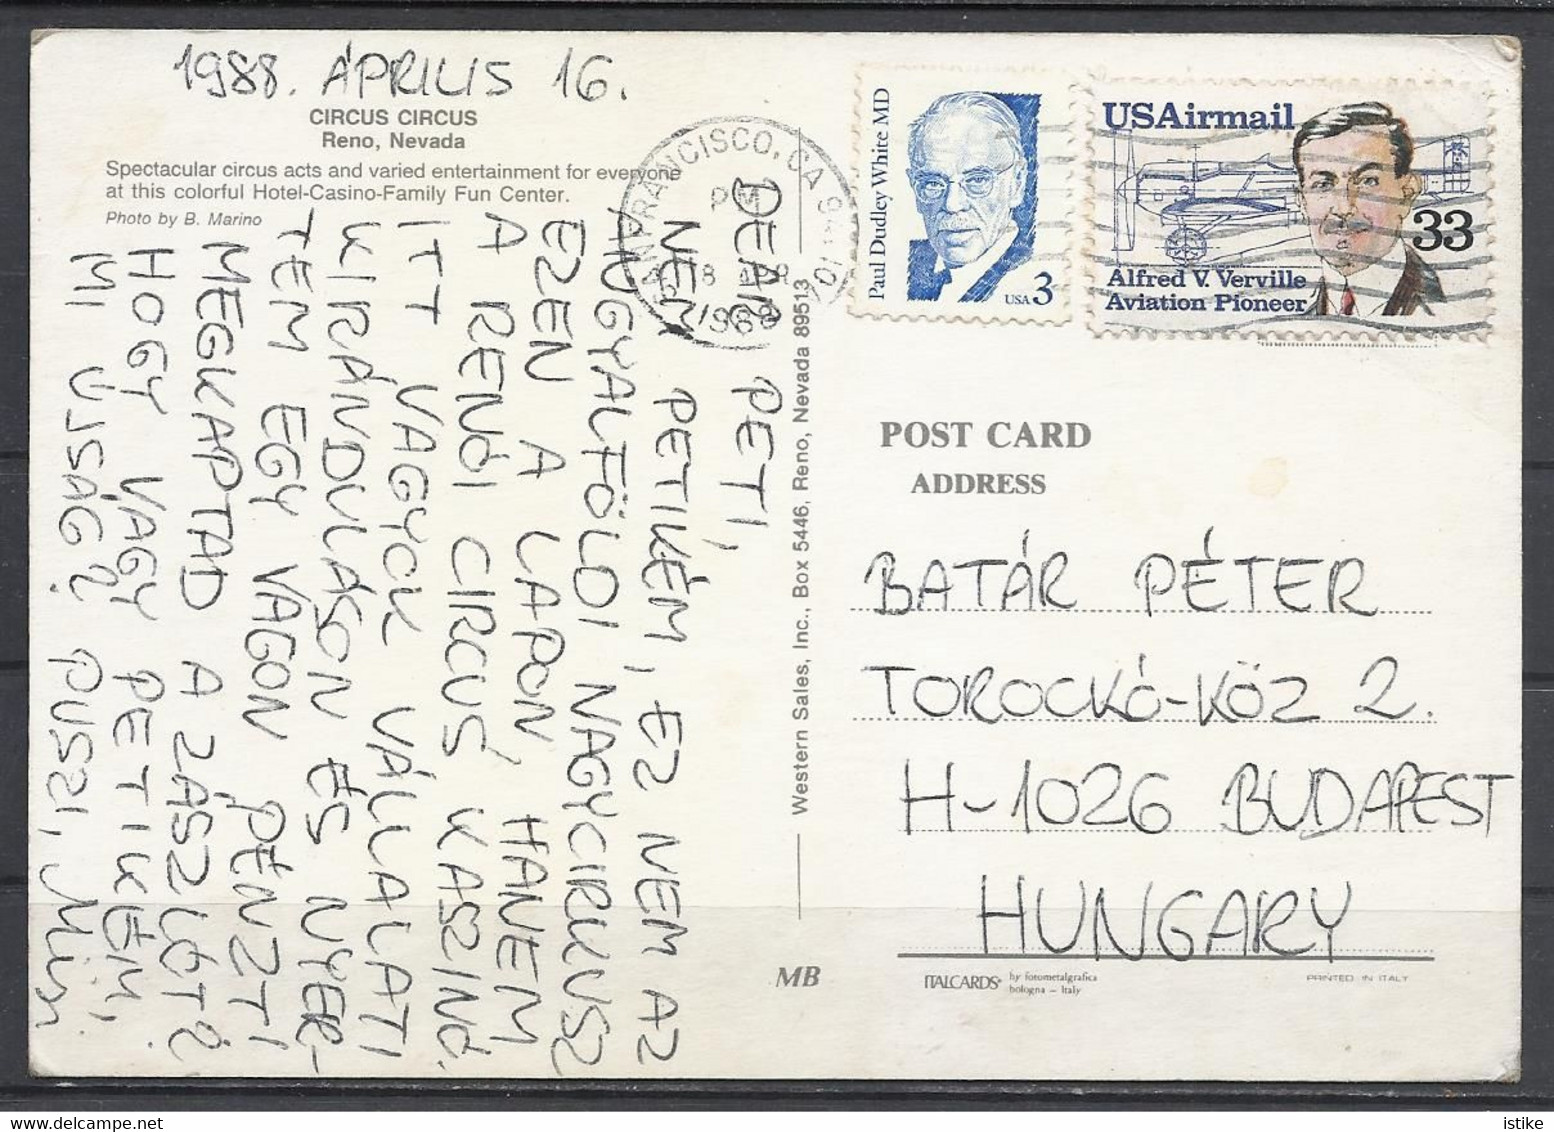 1988. ÁPRILIS 16.
CIRCUS CIRCUS
Reno, Nevada
Spectacular circus acts and varied entertainment for everyone
at this colorful Hotel-Casino-Family Fun Center.
Photo by B. Marino
DEAR PETI,
NEM, PETIKÉM, EZ NEM AZ
ANGYALFÖLDI NAGYCIRKUSZ
EZEN A LAPON, HANEM
A RENÓI CIRCUS KASZINÓ.
ITT VAGYOK VÁLLALATI
KIRÁNDULÁSON ÉS NYER-
TEM EGY VAGON PÉNZT!
MEGKAPTAD A ZÁSZLÓT?
HOGY VAGY PETIKÉM,
MI ÚJSÁG? PUSZI,
Western Sales, Inc., Box 5446, Reno, Nevada 89513
FRANCISCO, CA
PM
1988
Paul Dudley White MD
USA 3
USAirmail
33
Alfred V. Verville
Aviation Pioneer
POST CARD
ADDRESS
BATÁR PÉTER
TOROCKÓ-KÖZ 2.
H-1026 BUDAPEST
HUNGARY
MB
ITALCARDS
by fotometalgrafica
bologna - Italy
PRINTED IN ITALY
istike